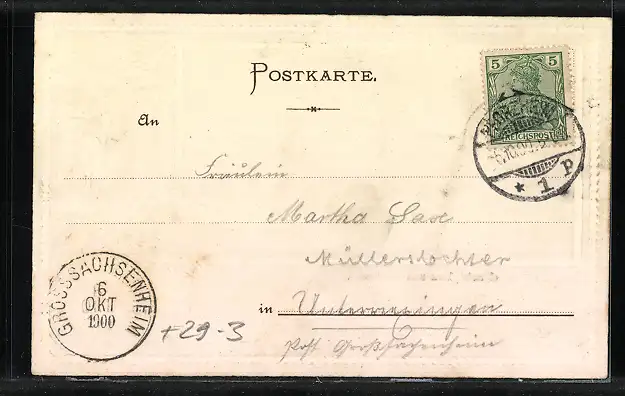 POSTKARTE.
5 5
REICHSPOST
6.10.00.
* 1 p
An
Fräulein
Martha Saxe
Müllerstochter
in Unterriexingen
Post Großsachsenheim
GROSSSACHSENHEIM
6
OKT
1900
+29-3